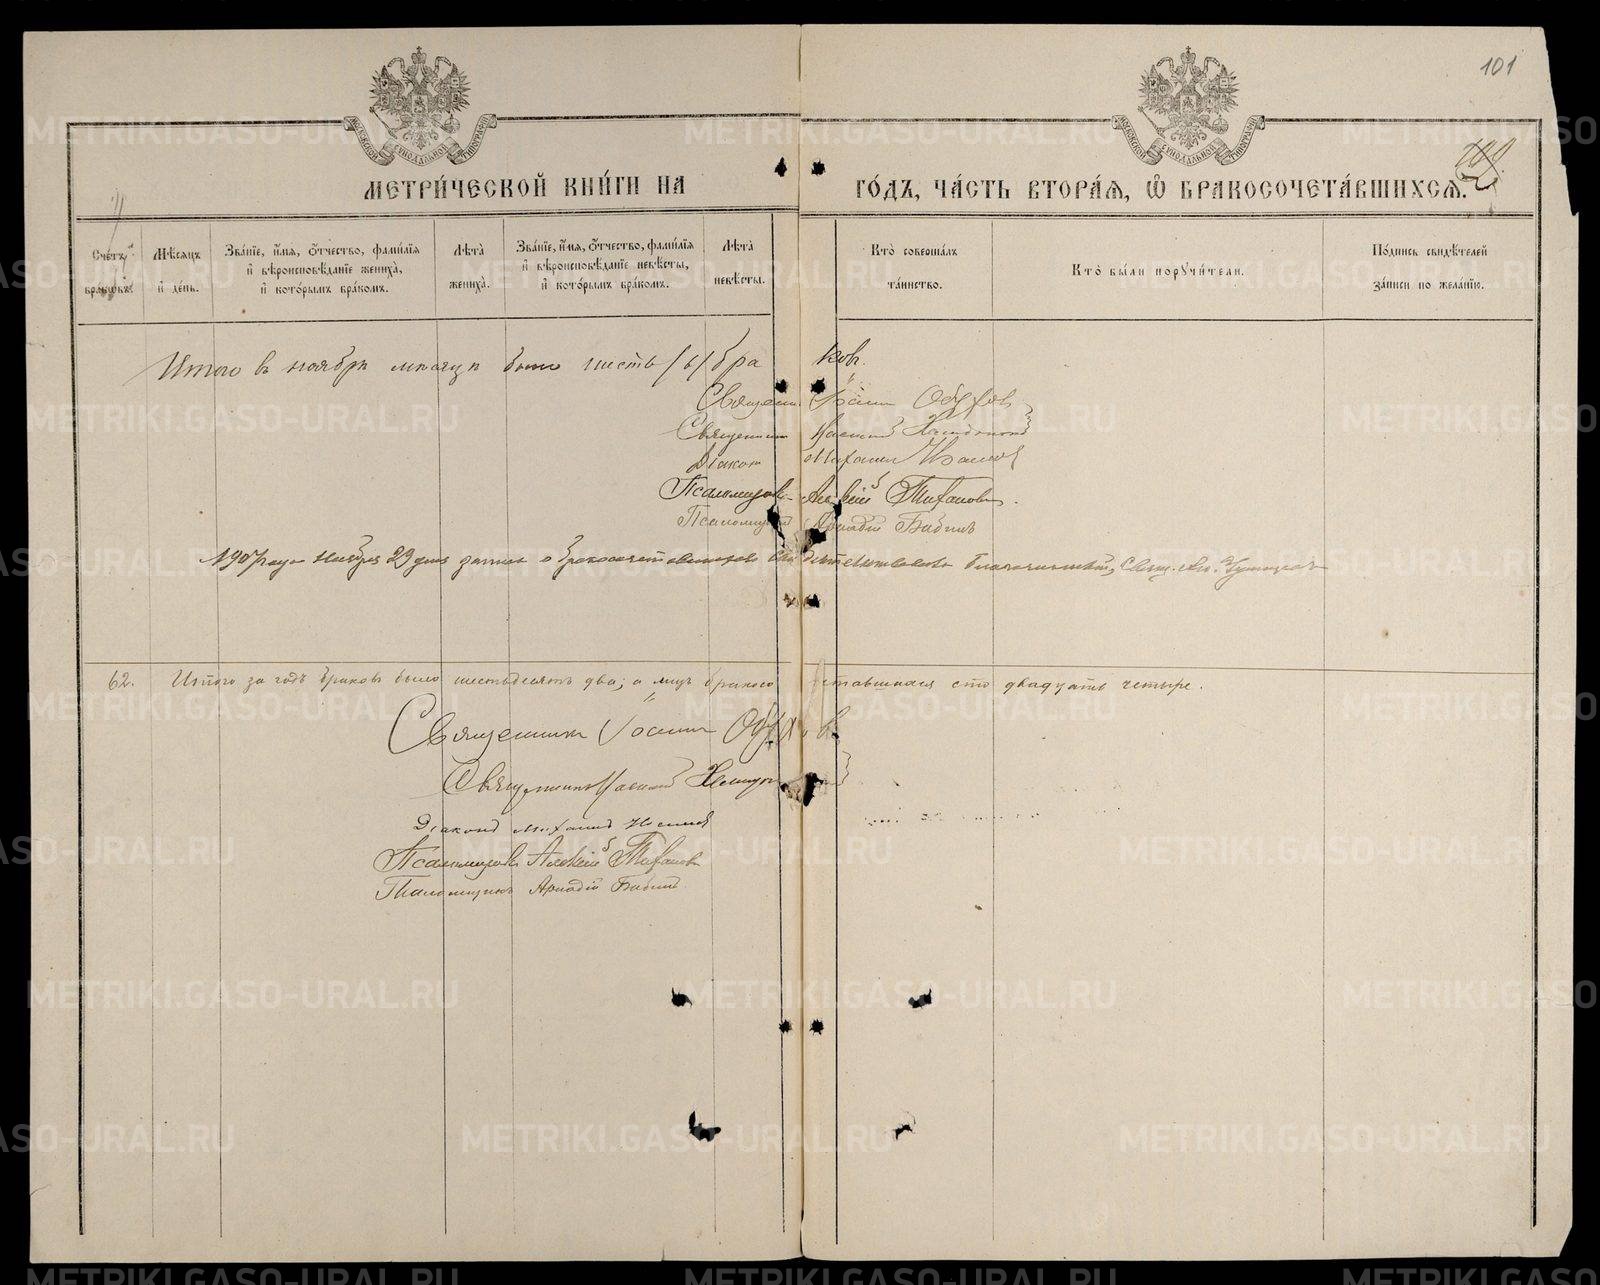 101
МОСКОВСКОЙ СѴНОДАЛЬНОЙ ТИПОГРАФІИ
МОСКОВСКОЙ СѴНОДАЛЬНОЙ ТИПОГРАФІИ
МЕТРИ́ЧЕСКОЙ КНИ́ГИ НА ГО́ДЪ, ЧА́СТЬ ВТОРА́Ѧ, Ѽ БРАКОСОЧЕТА́ВШИХСѦ.
Сче́тъ бра́ковъ.
Мѣ́сяцъ и҆ де́нь.
Зва́нїе, и҆́мѧ, ѻ҆́тчество, фами́лїѧ и҆ вѣроисповѣ́данїе жениха̀, и҆ кото́рымъ бра́комъ.
Лѣ́та жениха̀.
Зва́нїе, и҆́мѧ, ѻ҆́тчество, фами́лїѧ и҆ вѣроисповѣ́данїе невѣ́сты, и҆ кото́рымъ бра́комъ.
Лѣ́та невѣ́сты.
Кто̀ соверша́лъ та́инство.
Кто̀ бы́ли порꙋчи́тели.
По́дпись свидѣ́телей за́писи по жела́нїю.
Итого въ ноябрѣ мѣсяцѣ было шесть /6/ браковъ.
Священникъ Іоаннъ
Священникъ
Діаконъ Михаилъ
Псаломщикъ Алексій Тихановъ.
Псаломщикъ Аркадій Бабинъ
1907 года Ноября 29 дня запись о бракосочетавшихся свидѣтельствовалъ благочинный, Свящ.
62. Итого за годъ браковъ было шестьдесятъ два; а лицъ бракосочетавшихся сто двадцать четыре.
Священникъ Іоаннъ
Священникъ
Діаконъ Михаилъ
Псаломщикъ Алексій Тихановъ
Псаломщикъ Аркадій Бабинъ.
METRIKI.GASO-URAL.RU